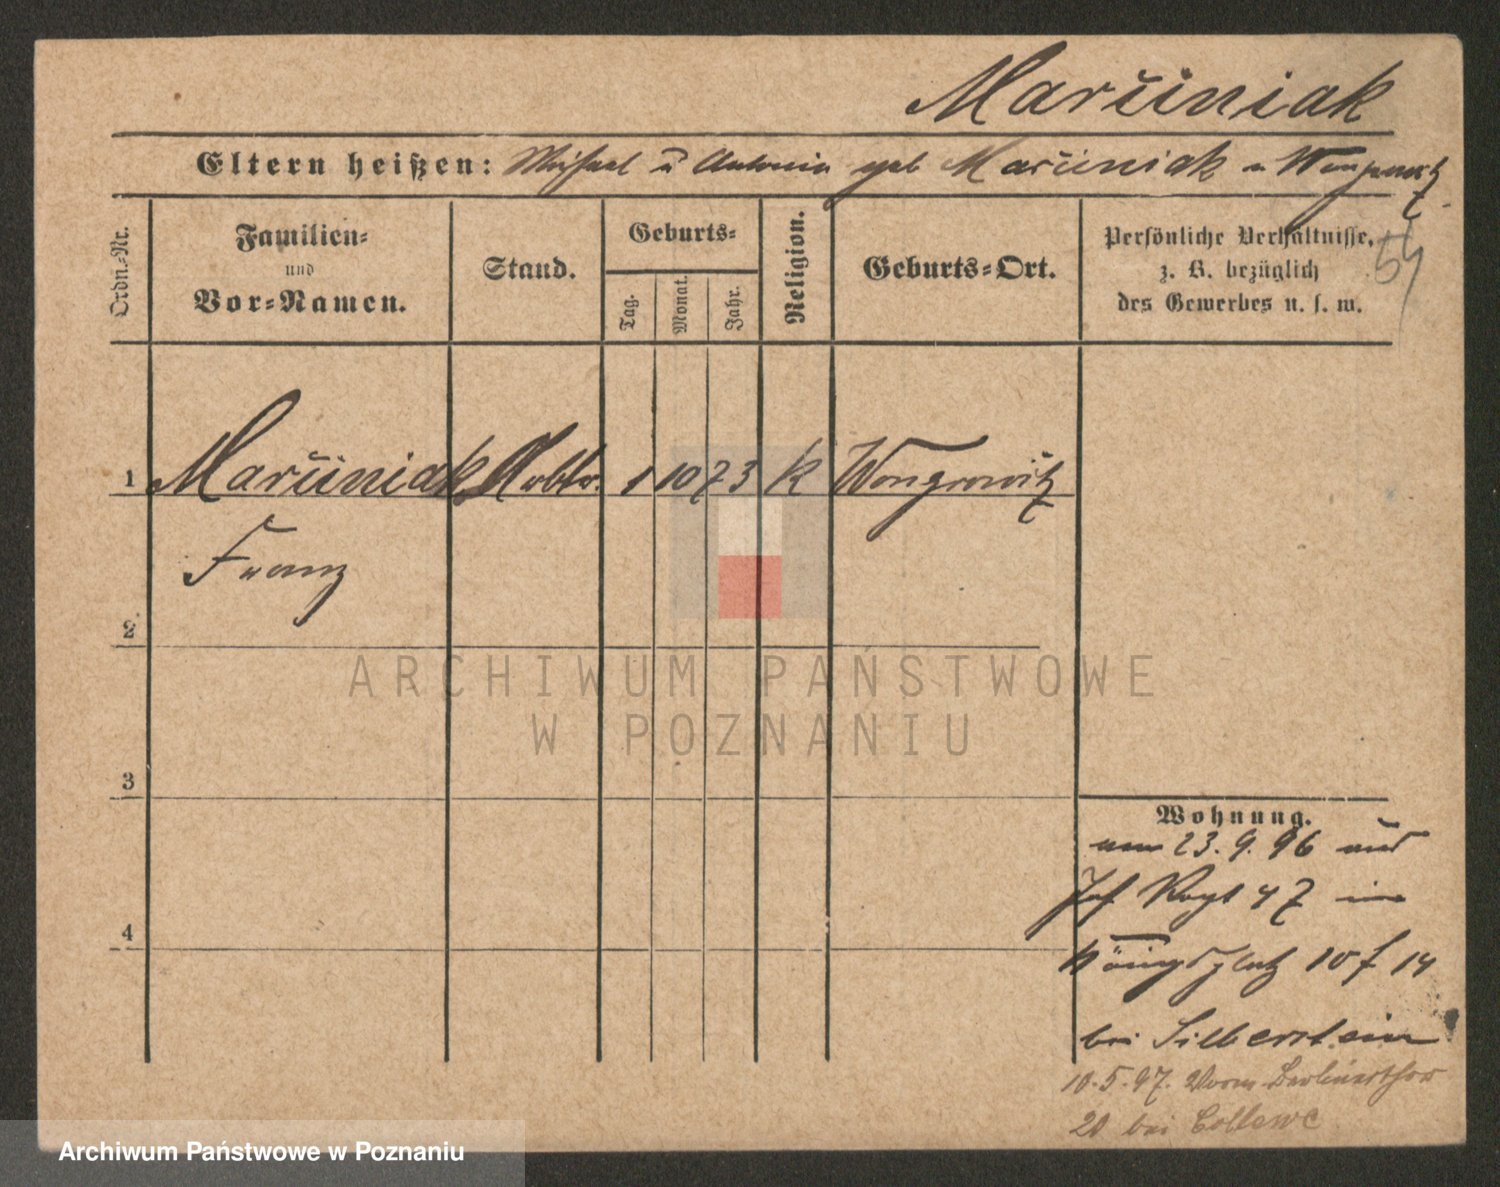 Maruniak
Eltern heißen: Michael u Antonia geb Maruniak u Wongrowitz
Ordn.-Nr.
Familien-
und
Vor-Namen.
Stand.
Geburts-
Tag.
Monat.
Jahr.
Religion.
Geburts-Ort.
Persönliche Verhältnisse,
z. B. bezüglich
des Gewerbes u. s. w.
54
1 Maruniak Arbtr. 1 10 73 K Wongrowitz
Franz
2
3
4
Wohnung.
am 23.9.96 aus
47 in
Königsplatz 10 14
bei Silberstein
10.5.97. Vorm Berlinerthor
20 bei
ARCHIWUM PAŃSTWOWE
W POZNANIU
Archiwum Państwowe w Poznaniu